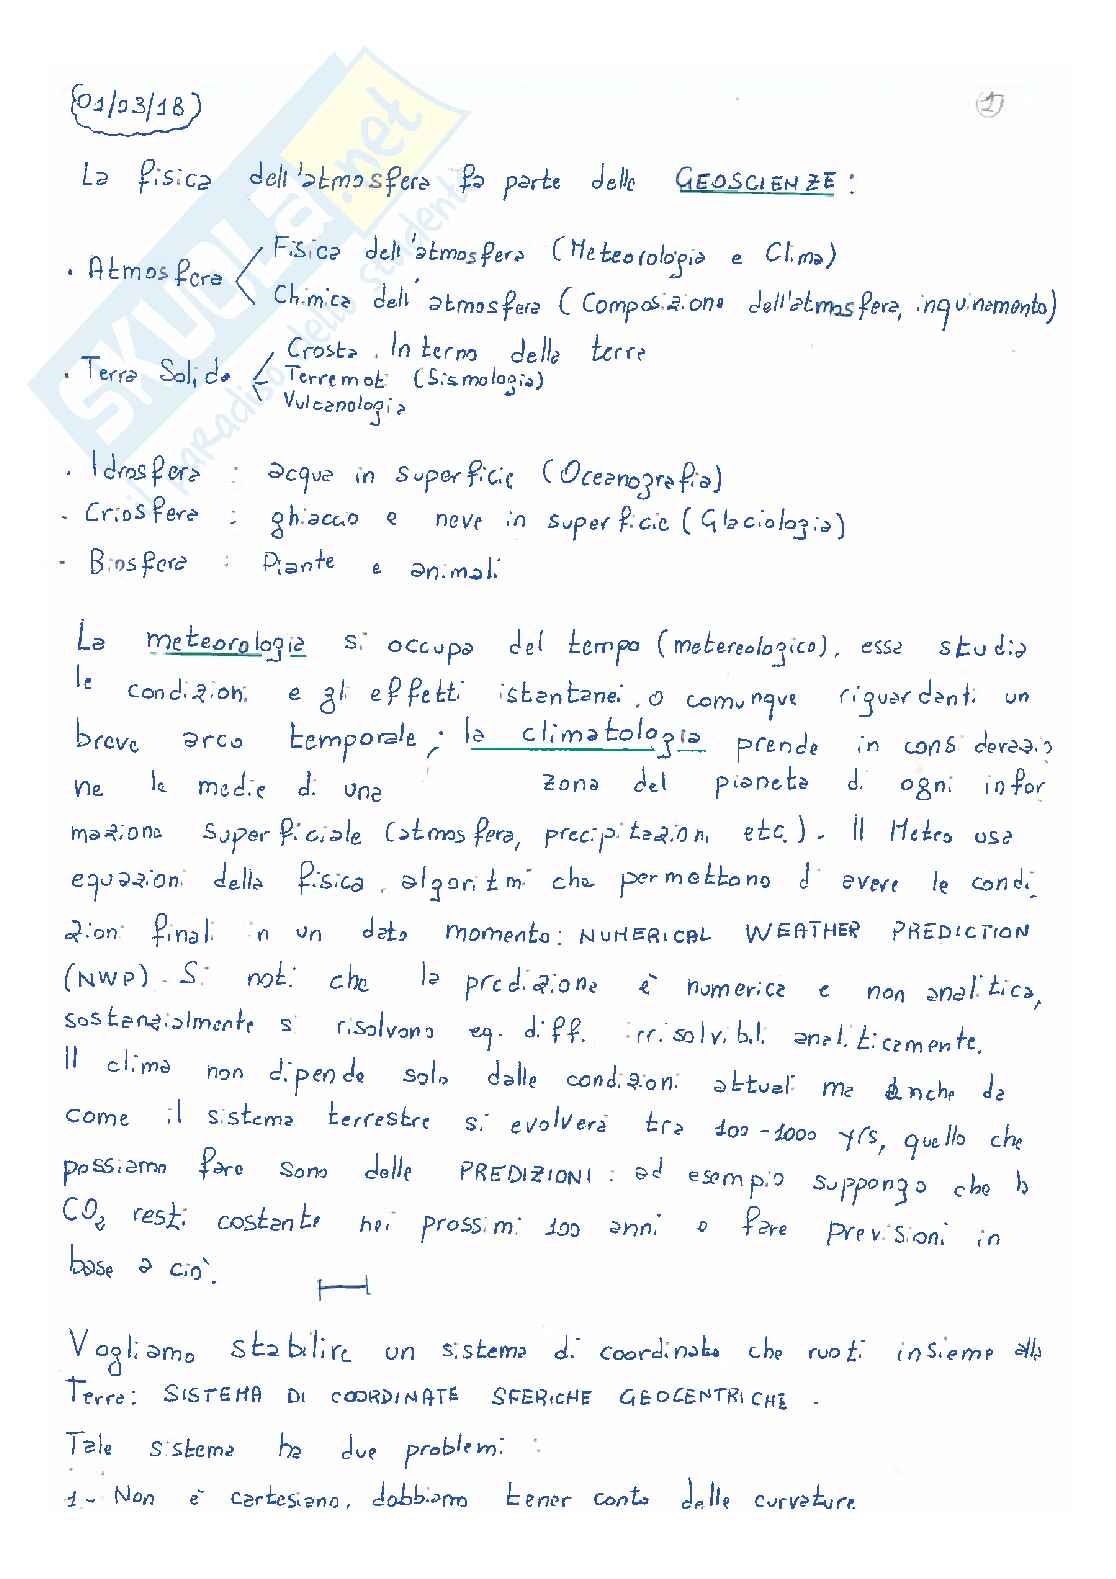 01/03/18
1
La fisica dell'atmosfera fa parte delle GEOSCIENZE:
· Atmosfera
Fisica dell'atmosfera (Meteorologia e Clima)
Chimica dell'atmosfera (Composizione dell'atmosfera, inquinamento)
· Terra Solida
Crosta, Interno della terra
Terremoti (Sismologia)
Vulcanologia
· Idrosfera : acqua in superficie (Oceanografia)
- Criosfera : ghiaccio e neve in superficie (Glaciologia)
- Biosfera : Piante e animali
La meteorologia si occupa del tempo (metereologico), essa studia
le condizioni e gli effetti istantanei, o comunque riguardanti un
breve arco temporale; la climatologia prende in considerazio
ne le medie di una zona del pianeta di ogni infor
mazione superficiale (atmosfera, precipitazioni, etc.). Il Meteo usa
equazioni della fisica, algoritmi che permettono di avere le condi
zioni finali in un dato momento: NUMERICAL WEATHER PREDICTION
(NWP). Si noti che la predizione è numerica e non analitica,
sostanzialmente si risolvono eq. diff. irrisolvibili analiticamente.
Il clima non dipende solo dalle condizioni attuali ma anche da
come il sistema terrestre si evolverà tra 100-1000 yrs, quello che
possiamo fare sono delle PREDIZIONI: ad esempio suppongo che la
CO2 resti costante nei prossimi 100 anni e fare previsioni in
base a ciò.
Vogliamo stabilire un sistema di coordinate che ruoti insieme alla
Terra: SISTEMA DI COORDINATE SFERICHE GEOCENTRICHE.
Tale sistema ha due problemi:
1- Non è cartesiano, dobbiamo tener conto delle curvature
SKUOLA.net
il paradiso dello studente